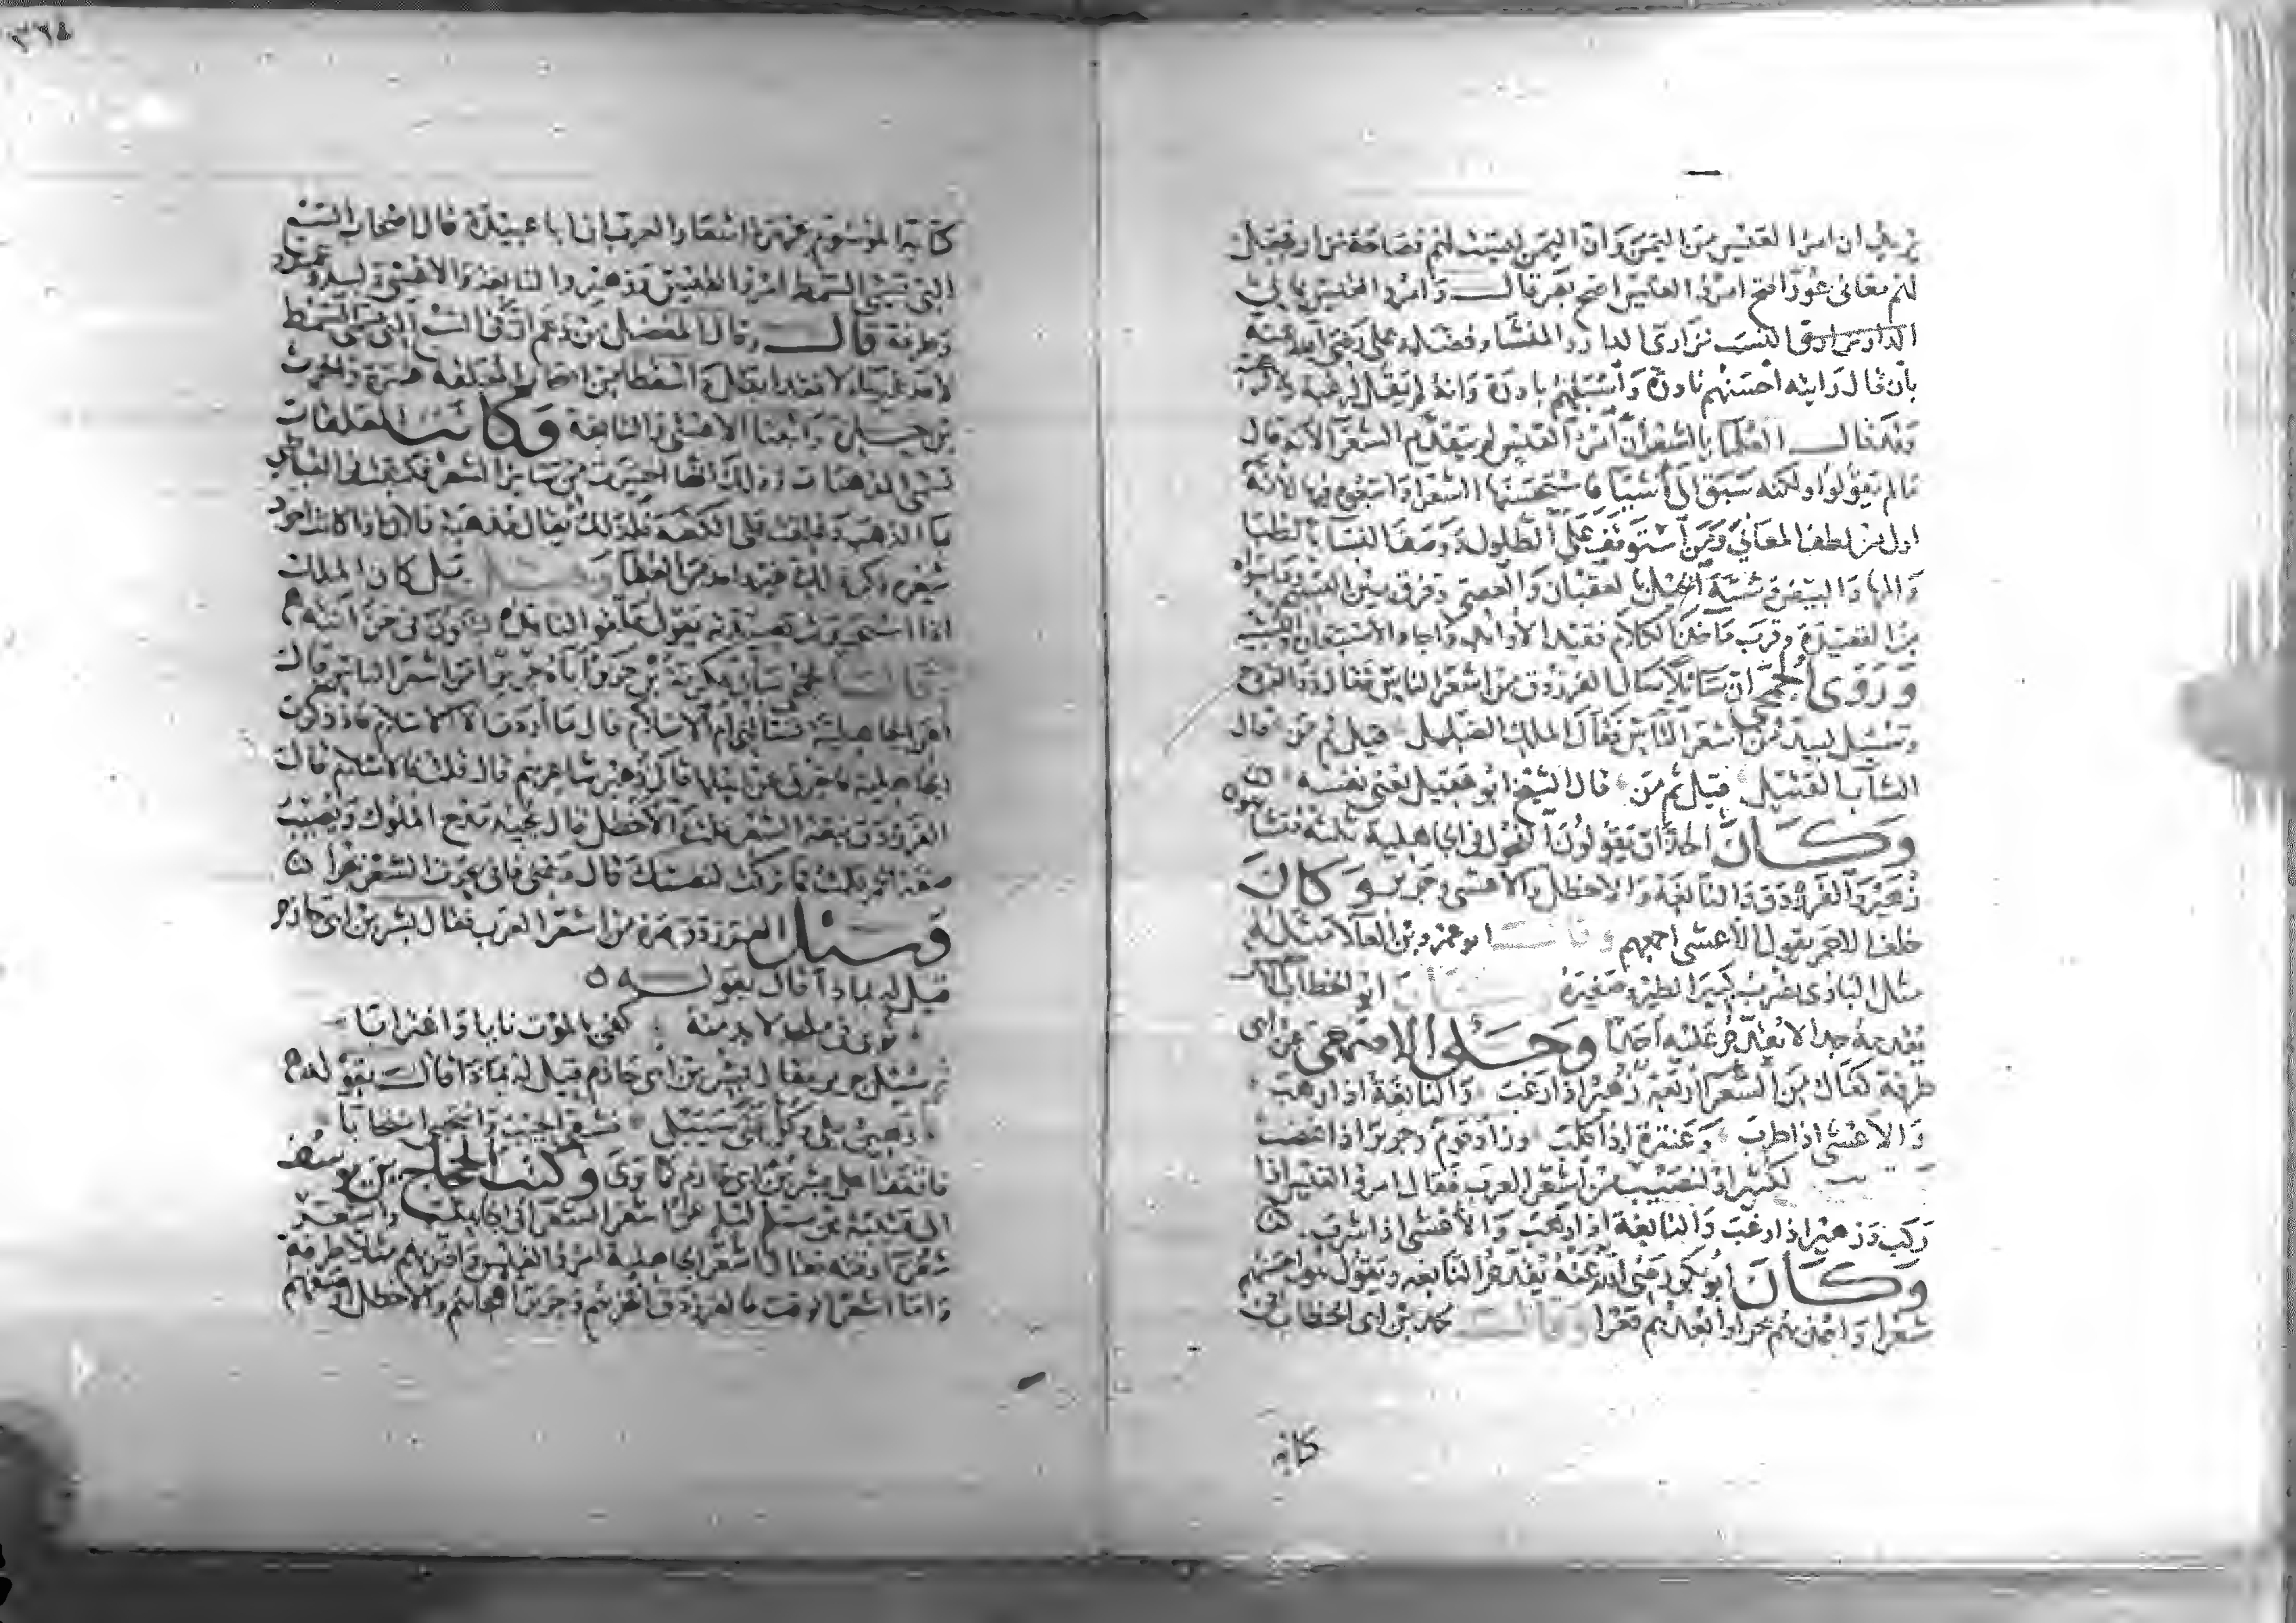 يريد ان امرا القيس من اليمن وان اليمن ليست لهم فصاحة نزار فجعل
لهم معاني عورا فتح امرؤ القيس اصح بصر قال وامرؤ القيس يماني
النسب نزاري الدار والمنشا وفضله علي رضى الله عنه
بان قال رايته احسنهم نادرة واسبقهم بادرة وانه لم يقل لرغبة ولا
وقد قال العلما بالشعر ان امرأ القيس لم يتقدم الشعرا لانه قال
ما لم يقولوا ولكنه سبق الى اشيا فاستحسنها الشعرا واتبعوه فيها لانه
اول من لطف المعاني ومن استوقف على الطلول ووصف النسا بالظبا
والمها والبيض وشبه الخيل بالعقبان والعصي وفرق بين النسيب وما سواه
من القصيدة وقرب ماخذ الكلام فقيد الاوابد واجاد الاستعارة والتشبيه
وروى الجمحي ان سائلا سال الفرزدق من اشعر الناس فقال ذو القروح
وسئل لبيد من اشعر الناس فقال الملك الضليل قيل ثم من قال
الشاب القتيل قيل ثم من قال الشيخ ابو عقيل يعني نفسه
وكان الحذاق يقولون الفحول في الجاهلية ثلثة متشابهون
زهير والفرزدق والنابغة والاخطل والاعشى وجرير وكان
خلف الاحمر يقول الاعشى اجمعهم وقال ابو عمرو بن العلا مثله
مثل البازي يضرب كبير الطير وصغيره ابو الخطاب
يقدمه جدا لا يقدم عليه احدا وحكى الاصمعي عن ابي
طرفة كفاك من الشعرا اربعة زهير اذا رغب والنابغة اذا رهب
والاعشى اذا طرب وعنترة اذا كلب وزاد قوم وجرير اذا غضب
لكثير او لنصيب من اشعر العرب فقال امرؤ القيس اذا
ركب وزهير اذا رغب والنابغة اذا رهب والاعشى اذا شرب
وكان ابو بكر رضى الله عنه يقدم النابغة ويقول هو احسنهم
شعرا واعذبهم بحرا وابعدهم قعرا وقال محمد بن ابي الخطاب في
كتابه
٣٦٤
كتابه الموسوم بجمهرة اشعار العرب ان ابا عبيدة قال اصحاب السبع
التي تسمى السمط امرؤ القيس وزهير والنابغة والاعشى ولبيد وعمرو
وطرفة قال وقال المفضل من زعم ان في السبع التي تسمى السمط
لاحد غير هؤلاء فقد ابطل فاسقطا من اصحاب المعلقة عنترة والحرث
بن حلزة واثبتا الاعشى والنابغة وكانت المعلقات
تسمى المذهبات وذلك انها اختيرت من سائر الشعر فكتبت في القباطي
بما الذهب وعلقت على الكعبة فلذلك يقال مذهبة فلان اذا كانت اجود
شعره ذكره ذلك غير واحد من العلما وقيل بل كان الملك
اذا استجيدت قصيدة يقول علقوا لنا هذه لتكون في خزانته
وقال الجمحي سال عكرمة بن جرير اباه جريرا من اشعر الناس قال
اعن الجاهلية تسالني ام الاسلام قال ما اردت الا الاسلام فاذ ذكرت
الجاهلية فاخبرني عن اهلها قال زهير شاعرهم قال قلت فالاسلام قال
الفرزدق نبعة الشعر قلت فالاخطل قال يجيد مدح الملوك ويصيب
صفة الخمر قلت فما تركت لنفسك قال دعني فاني نحرت الشعر نحرا
وسئل الفرزدق مرة من اشعر العرب فقال بشر بن ابي خازم
قيل له بماذا قال بقوله
ثوى في ملحد لا بد منه كفى بالموت نايا واغترابا
ثم سئل جرير فقال بشر بن ابي خازم قيل له بماذا قال بقوله
رهين بلى وكل فتى سيبلى فشقي الجيب وانتحبي انتحابا
فاتفقا على بشر بن ابي خازم كما ترى وكتب الحجاج بن يوسف
الى قتيبة بن مسلم يساله عن اشعر الشعرا في الجاهلية واشعر
شعرا وقته فقال اشعر الجاهلية امرؤ القيس واضربهم مثلا طرفة
واما اشعرا الوقت فالفرزدق افخرهم وجرير اهجاهم والاخطل اوصفهم